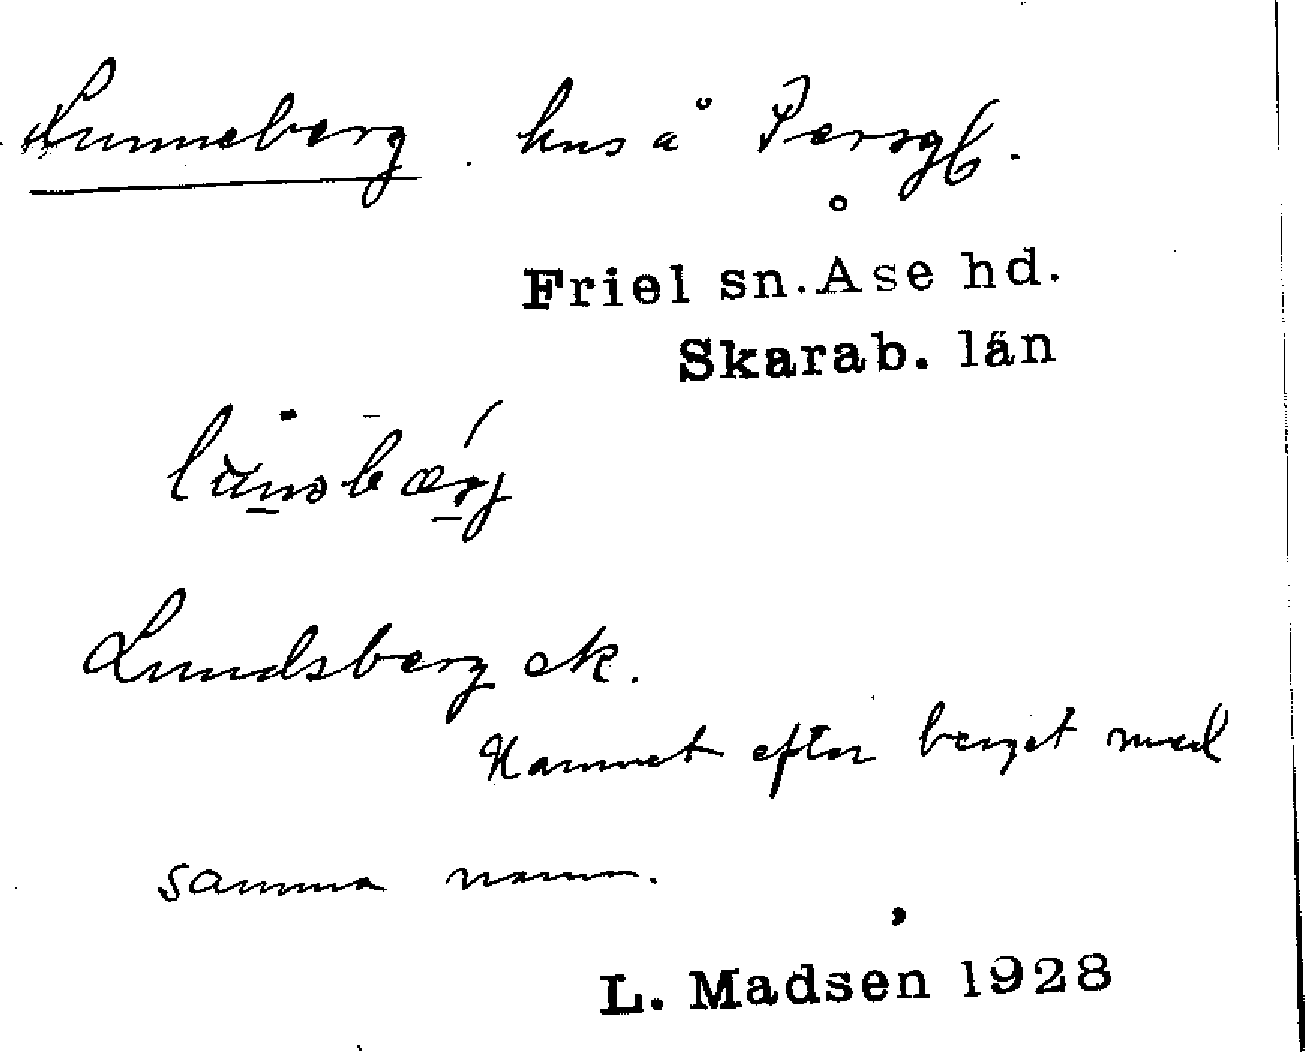 Lunneberg. hus å Persgb.
Friel sn. Åse hd.
Skarab. län
Lundsberg ek.
Namnet efter berget med
samma namn.
L. Madsen 1928